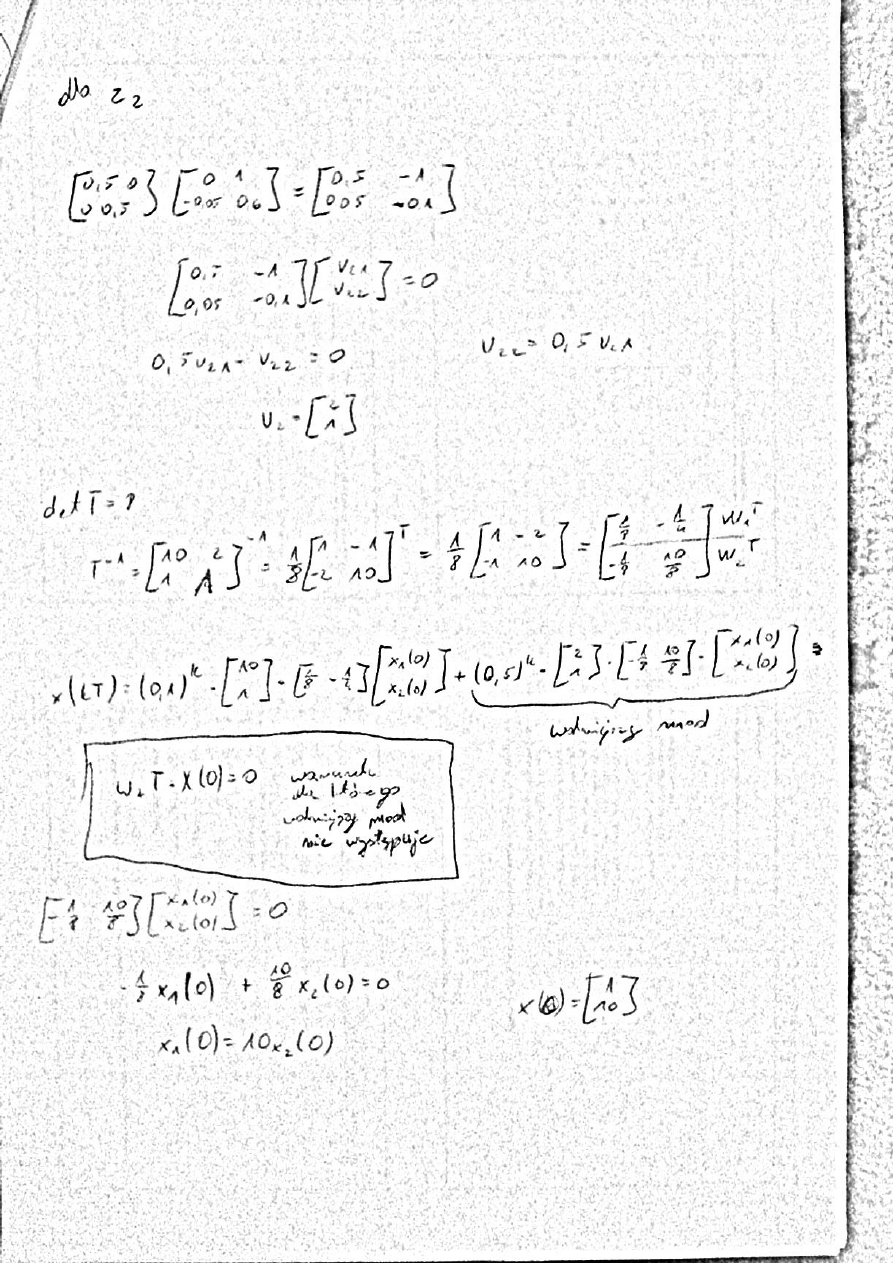 dla z₂
[0,5 0; 0 0,5] [0 1; -0,05 0,6] = [0,5 -1; 0,05 -0,1]
[0,5 -1; 0,05 -0,1] [v₂₁; v₂₂] = 0
0,5 v₂₁ - v₂₂ = 0 v₂₂ = 0,5 v₂₁
v₂ = [2; 1]
det T = 8
T⁻¹ = [10 2; 1 1]⁻¹ = 1/8 [1 -1; -2 10]ᵀ = 1/8 [1 -2; -1 10] = [1/8 -1/4; -1/8 10/8] w₁ᵀ w₂ᵀ
x(kT) = (0,1)ᵏ · [10; 1] · [1/8 -1/4] [x₁(0); x₂(0)] + (0,5)ᵏ · [2; 1] · [-1/8 10/8] · [x₁(0); x₂(0)] =
wolniejszy mod
w₂T · X(0) = 0 warunek
dla którego
wolniejszy mod
nie występuje
[-1/8 10/8] [x₁(0); x₂(0)] = 0
-1/8 x₁(0) + 10/8 x₂(0) = 0
x(0) = [1; 10]
x₁(0) = 10x₂(0)